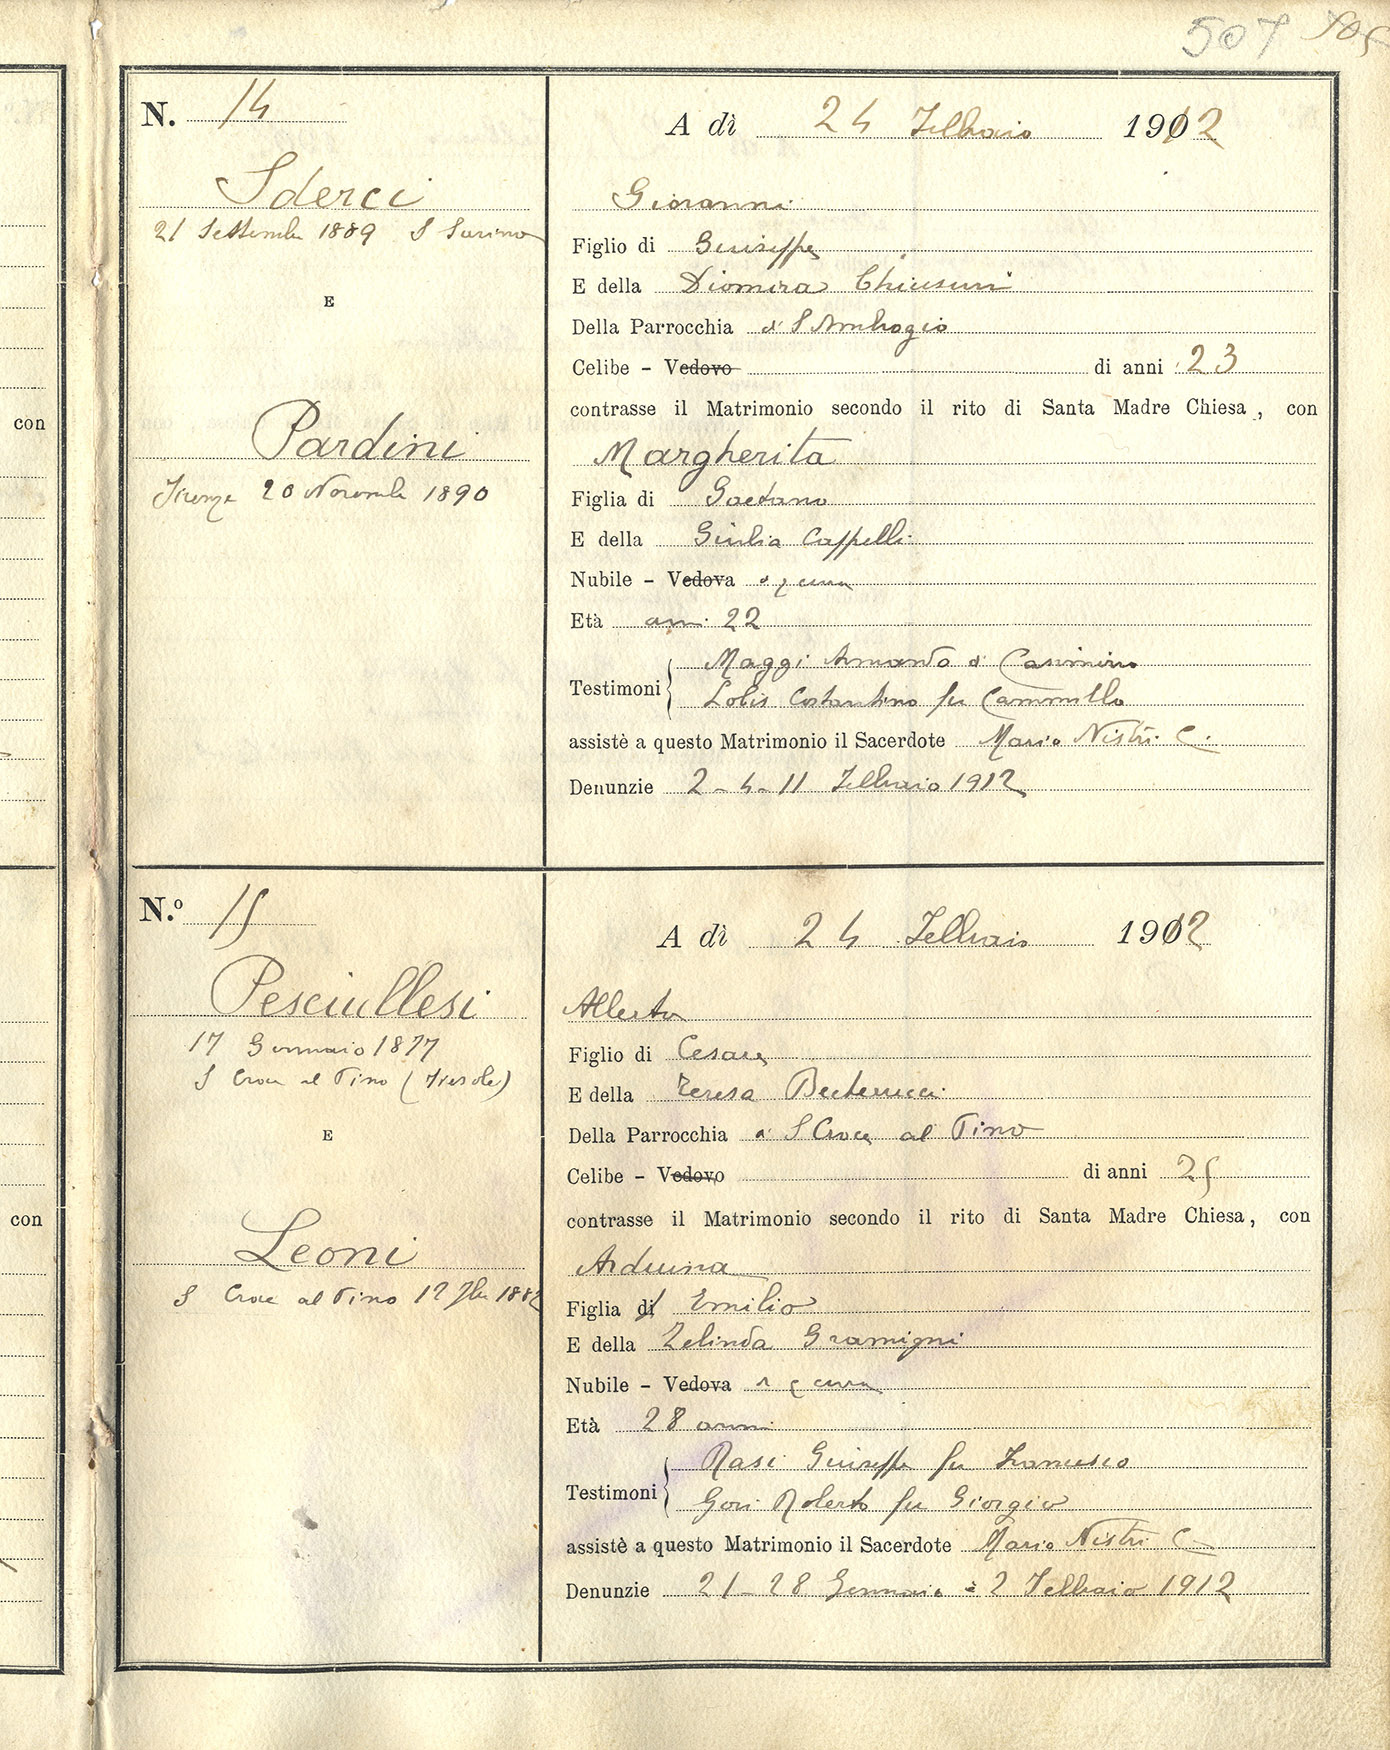 507 505
N. 14
A dì 24 Febbraio 1912
Sderci
21 Settembre 1889 S
E
Pardini
Firenze 20 Novembre 1890
Giovanni
Figlio di Giuseppe
E della Diomira Chiusuri
Della Parrocchia di S Ambrogio
Celibe - Vedovo di anni 23
contrasse il Matrimonio secondo il rito di Santa Madre Chiesa, con
Margherita
Figlia di Gaetano
E della Giulia Cappelli
Nubile - Vedova di q cura
Età anni 22
Maggi Armando di Casimiro
Testimoni
Lolis Costantino fu Cammillo
assistè a questo Matrimonio il Sacerdote Mario Nistri C.
Denunzie 2-4-11 Febbraio 1912
N.º 15
A dì 24 Febbraio 1912
Pesciullesi
17 Gennaio 1877
S Croce al Pino (Fiesole)
E
Leoni
S Croce al Pino 12 1882
Alberto
Figlio di Cesare
E della Teresa Betterucci
Della Parrocchia di S Croce al Pino
Celibe - Vedovo di anni 25
contrasse il Matrimonio secondo il rito di Santa Madre Chiesa, con
Arduina
Figlia di Emilio
E della Zelinda Gramigni
Nubile - Vedova di q cura
Età 28 anni
Rasi Giuseppe fu Francesco
Testimoni
Gori Roberto fu Giorgio
assistè a questo Matrimonio il Sacerdote Mario Nistri C
Denunzie 21-28 Gennaio e 2 Febbraio 1912
con
con